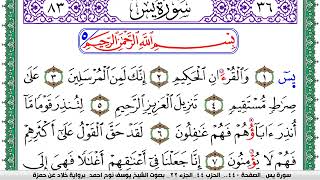 ٨٣ سورة يس ٣٦
بِسْمِ اللَّهِ الرَّحْمَٰنِ الرَّحِيمِ
يسٓ ١ وَالْقُرْءَانِ الْحَكِيمِ ٢ إِنَّكَ لَمِنَ الْمُرْسَلِينَ ٣ عَلَىٰ
صِرَٰطٍ مُّسْتَقِيمٍ ٤ تَنزِيلَ الْعَزِيزِ الرَّحِيمِ ٥ لِتُنذِرَ قَوْمًا مَّا
أُنذِرَ ءَابَآؤُهُمْ فَهُمْ غَٰفِلُونَ ٦ لَقَدْ حَقَّ الْقَوْلُ عَلَىٰٓ أَكْثَرِهِمْ
فَهُمْ لَا يُؤْمِنُونَ ٧ إِنَّا جَعَلْنَا فِىٓ أَعْنَٰقِهِمْ أَغْلَٰلًا فَهِىَ إِلَى
سورة يس الصفحة ٤٤٠ الحزب ٤٤ الجزء ٢٢ بصوت الشيخ يوسف نوح احمد برواية خلاد عن حمزة